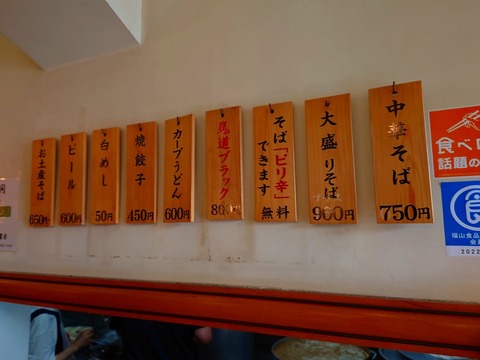 中華そば
750円
大盛りそば
900円
そば「ピリ辛」
できます
無料
尾道ブラック
800円
カープうどん
600円
焼餃子
450円
白めし
50円
ビール
600円
お土産そば
650円
食べロ
話題の
食
福山食品
会員
2022